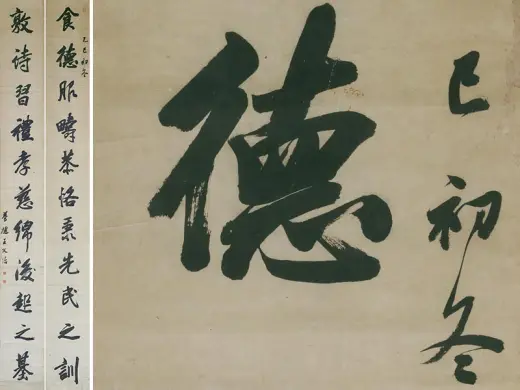 乙巳初冬
食德服疇恭恪秉先民之訓
敦詩習禮孝慈綿後起之基
夢樓王文治
巳初冬
德